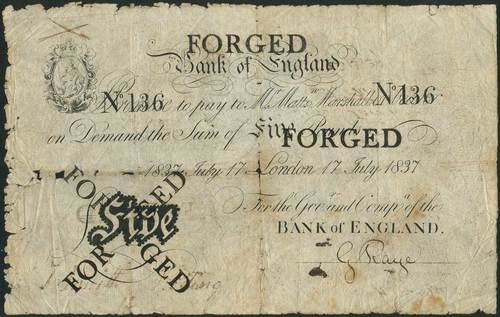 FORGED
Bank of England
No 136 Promise to pay to Mr. Mattw. Marshall No 136
on Demand the Sum of Five FORGED
1837 July 17 London 17 July 1837
For the Govr. and Compa. of the
BANK of ENGLAND.
FORGED
Five
FORGED